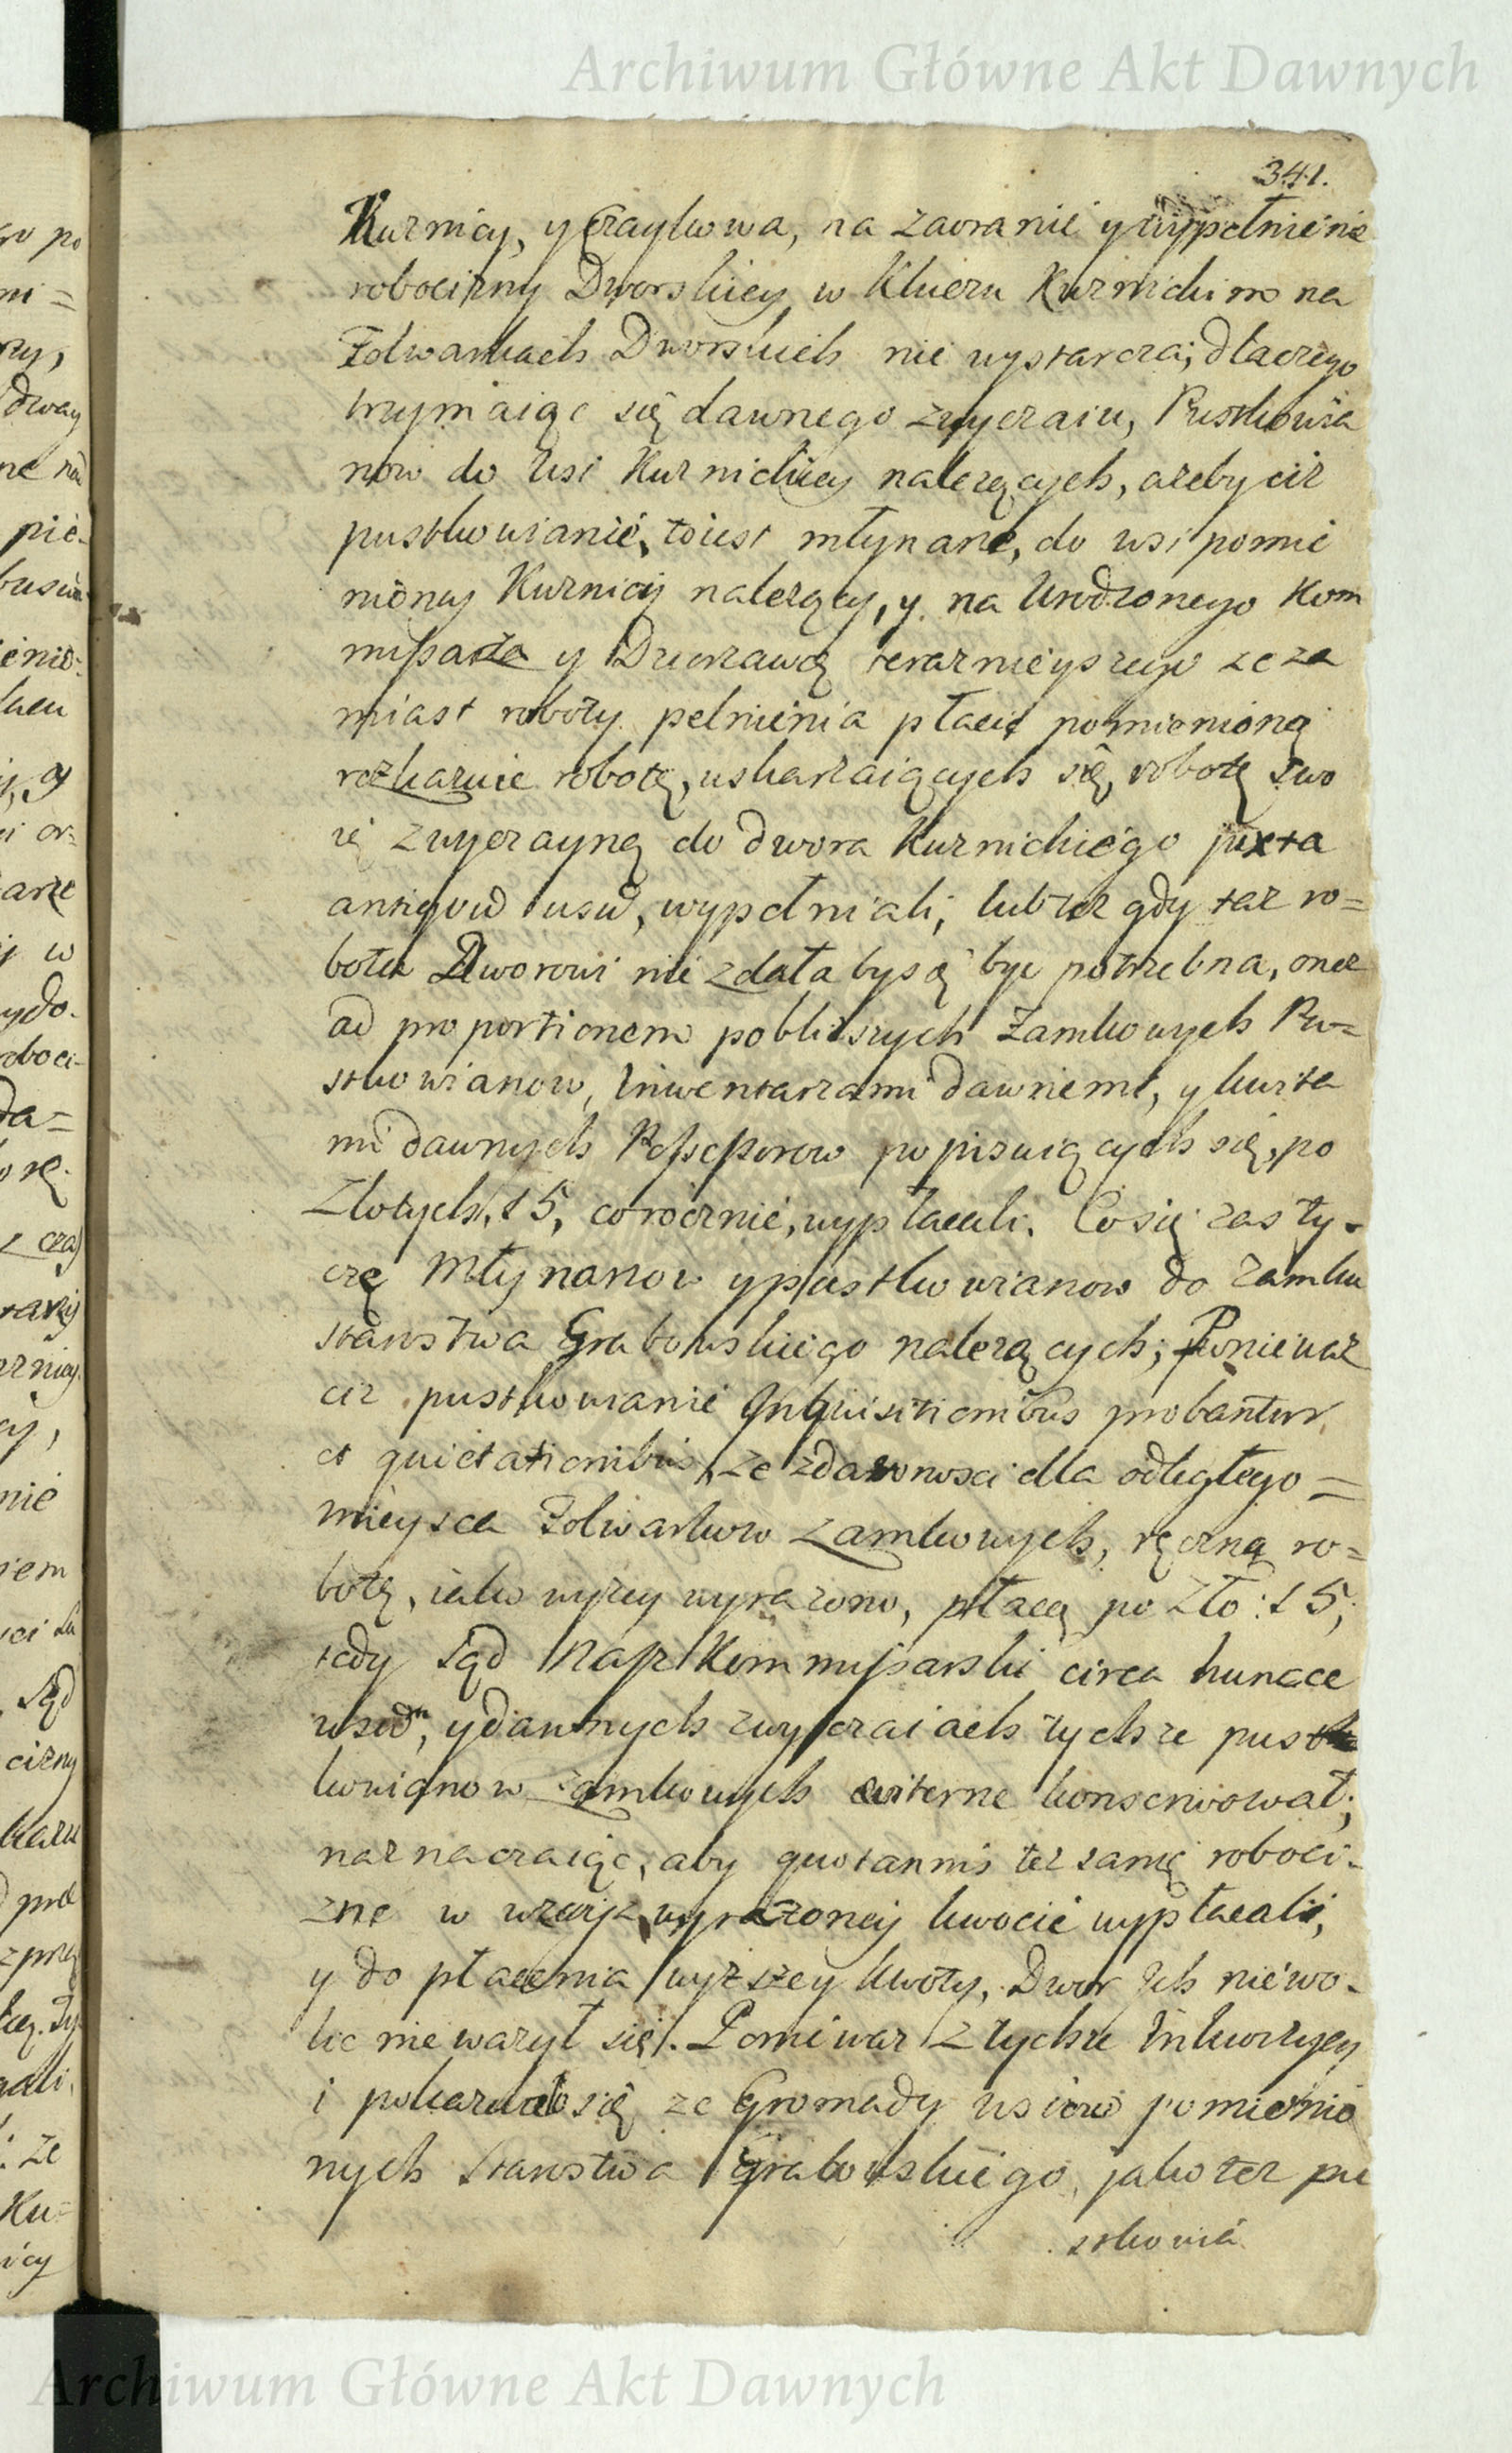 Archiwum Główne Akt Dawnych
341.
Kuźnicy, y Czaykowa, na zaoranie y wypełnienie
robocizny Dworskiey w Kluczu Kuźnickim na
Folwarkach Dworskich nie wystarczaią; dlaczego
trzymaiąc się dawnego zwyczaiu, Pustkowia
now do wsi Kuźnickiey należących, ażeby ciż
pustkowianie, toiest młynarze, do wsi pomie
nioney Kuźnicy należący, y na Urodzonego Kom
missarza y Dzierzawcę terazniejszego ze za
miast roboty pełnienia płacić pomienioną
rozkazuie robotę, uskarzaiących się, robotę swo
ię zwyczayną do dwora Kuznickiego juxta
antiquū usū, wypełniali; lub też gdy taż ro=
bota Dworowi nie zdała by się być potrzebna, onęż
ad proportionem pobliższych Zamkowych Pu=
stkowianow, Inwentarzami dawniemi, y kwita
mi dawnych Possessorow popisuiących się, po
Złotych, 15, corocznie, wypłacali. Co się zas ty-
czę Młynarzow y pustkowianow do Zamku
starostwa Grabowskiego należących; Ponieważ
ciż pustkowianie Inquisitionibus probantur
et quietationibus, ze zdawności dla odległego=
mieysca Folwarkow Zamkowych, ręczną ro=
botę, iako wyżey wyrazono, płacą po Zło: 15;
tedy Sąd Nasz Kommissarski circa huncce
usum, y dawnych zwyczaiach tychże pust
kowianow zamkowych witerne konserwował;
naznaczaiąc, aby quotannis też samę roboci-
znę w wzwyż wyrazoney kwocie wypłacali,
y do płacenia wyższey kwoty, Dwor Ich niewo-
lić nie ważył się. Poniewaz z tychże Inkwizycy
i pokazało się ze Gromady wsiow pomienio
nych Starostwa Grabowskiego, jako tez pu
stkowia
Archiwum Główne Akt Dawnych